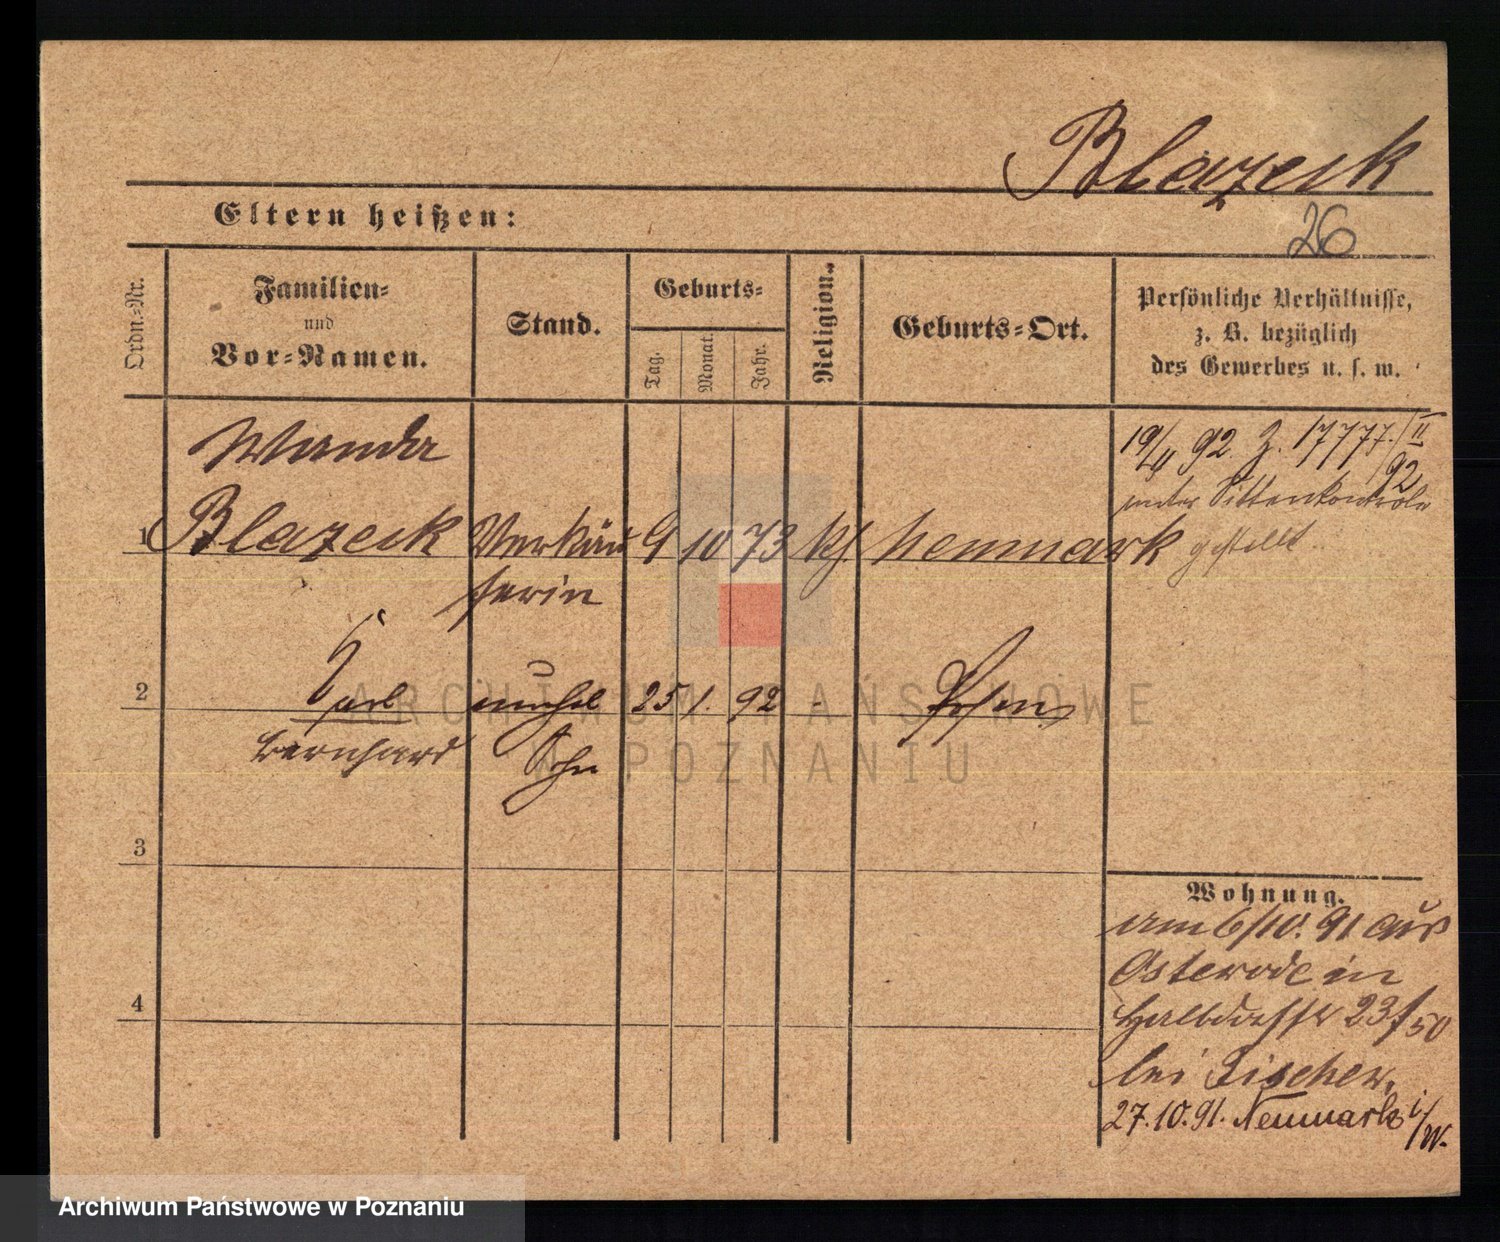 Blazeck
Eltern heißen:
26
Ordn.-Nr.
Familien-
und
Vor-Namen.
Stand.
Geburts-
Tag.
Monat.
Jahr.
Religion.
Geburts-Ort.
Persönliche Verhältnisse,
z. B. bezüglich
des Gewerbes u. s. w.
Wanda
19/4 92. Z. 17777./II
92
unter Sittenkontrole
1 Blazeck Verkäu 9 10 73 kf. Neumark gestellt
ferin
2 Carl unehel 25 1. 92 - Posen
Bernhard Sohn
3
Wohnung.
am 6/10. 91 aus
Osterode in
Halbdorfstr 23/50
bei Fischer,
27.10.91. Neumark i/W.
4
ARCHIWUM PAŃSTWOWE
W POZNANIU
Archiwum Państwowe w Poznaniu